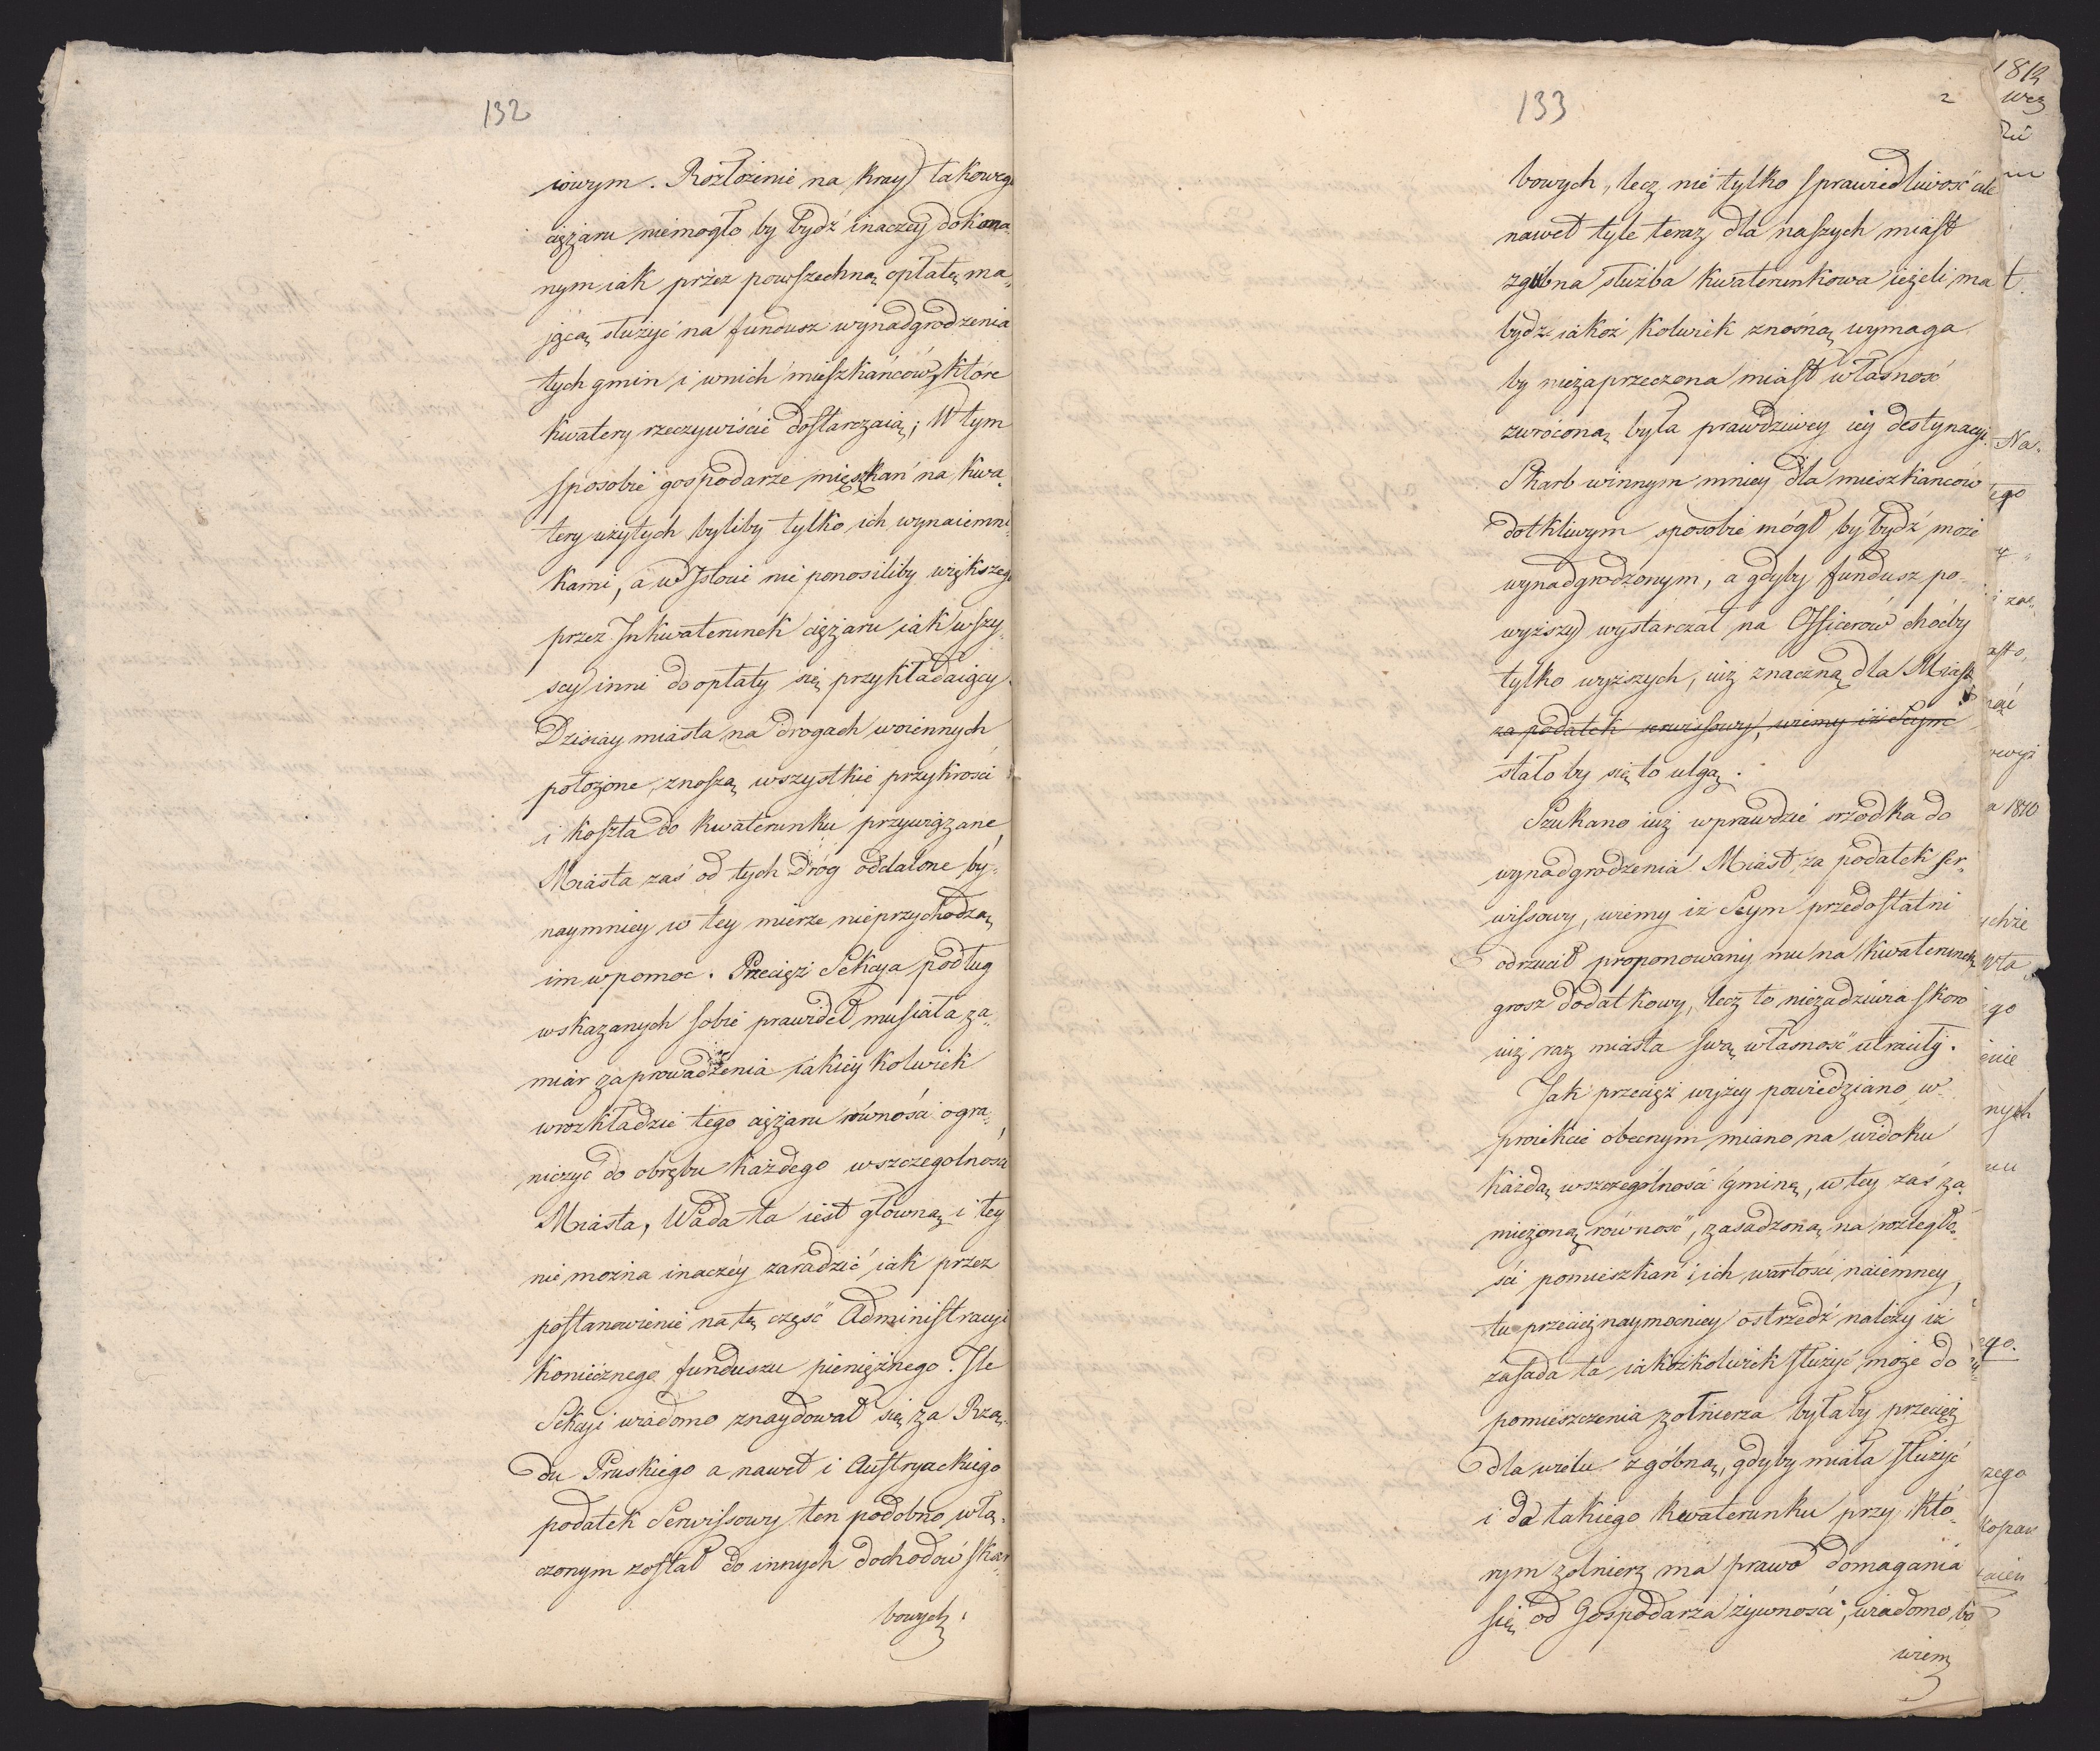 132
iowym. Rozłożenie na kray takowego
ciężaru niemogło by bydź inaczey dokona„
nym iak przez powszechną opłatę ma„
jącą służyć na fundusz wynadgrodzenia
tych gmin i wnich mieszkańców, które
kwatery rzeczywiście dostarczaią; W tym
sposobie gospodarze mięszkań na kwa„
tery użytych byliby tylko ich wynaiemni„
kami, a w Istocie nie ponosiliby większego
przez Inkwaterunek ciężaru iak wszy„
scy inni do opłaty się przykładaiący.
Dzisiay miasta na drogach woiennych
położone, znoszą wszystkie przykrości
i koszta do kwaterunku przywiązane,
Miasta zaś od tych Dróg oddalone by„
naymniey w tey mierze nieprzychodzą
im w pomoc. Przecięż Sekcya podług
wskazanych sobie prawideł musiała za„
miar zaprowadzenia iakiey kolwiek
w rozkładzie tego ciężaru równości ogra„
niczyć do obrębu każdego wszczególności
Miasta, Wada ta iest główną i tey
nie można inaczéy zaradzić iak przez
postanowienie na tę część Administracyi
koniecznego funduszu pieniężnego. Ile
Sekcyi wiadomo znaydował się za Rzą„
du Pruskiego a nawet i Austryackiego
podatek Serwissowy ten podobno włą„
czonym został do innych dochodów skar„
bowych
133
2
bowych, lecz nie tylko sprawiedliwość ale
nawet tyle teraz dla naszych miast
zgubna służba kwaterunkowa ieżeli ma
bydz iakoż kolwiek znośną wymaga
by niezaprzeczona miast własność
zwróconą była prawdziwey iey destynacyi.
Skarb winnym mniey dla mieszkańców
dotkliwym sposobie mógł by bydź może
wynadgrodzonym, a gdyby fundusz po„
wyższy wystarczał na Officerów choćby
tylko wyższych, iuż znaczną dla Miast
za podatek serwissowy, wiemy iż Seym
stało by się to ulgą.
Szukano iuż wprawdzie srzodka do
wynadgrodzenia Miast za podatek ser„
wissowy, wiemy iż Seym przedostatni
odrzucił proponowany mu na kwaterunek
grosz dodatkowy, lecz to niezadziwia skoro
iuż raz miasta swą własność utraciły.
Jak przecięż wyżey powiedziano w
proiekcie obecnym miano na widoku
każdą wszczególności gminę, w tey zaś za„
mieżoną równość, zasadzoną na rozległo„
ści pomieszkań i ich wartości naiemney,
tu przecież naymocniey ostrzedź należy iż
zasada ta iakożkolwiek służyć może do
pomieszczenia żołnierza byłaby przecięż
dla wielu zgóbną, gdyby miała służyć
i do takiego kwaterunku przy któ„
rym żolnierz ma prawo domagania
się od Gospodarza żywności, wiadomo bo
wiem
1812
t.
Na„
ego
a 1810
ychże
go
enie
nych
ego.
zego